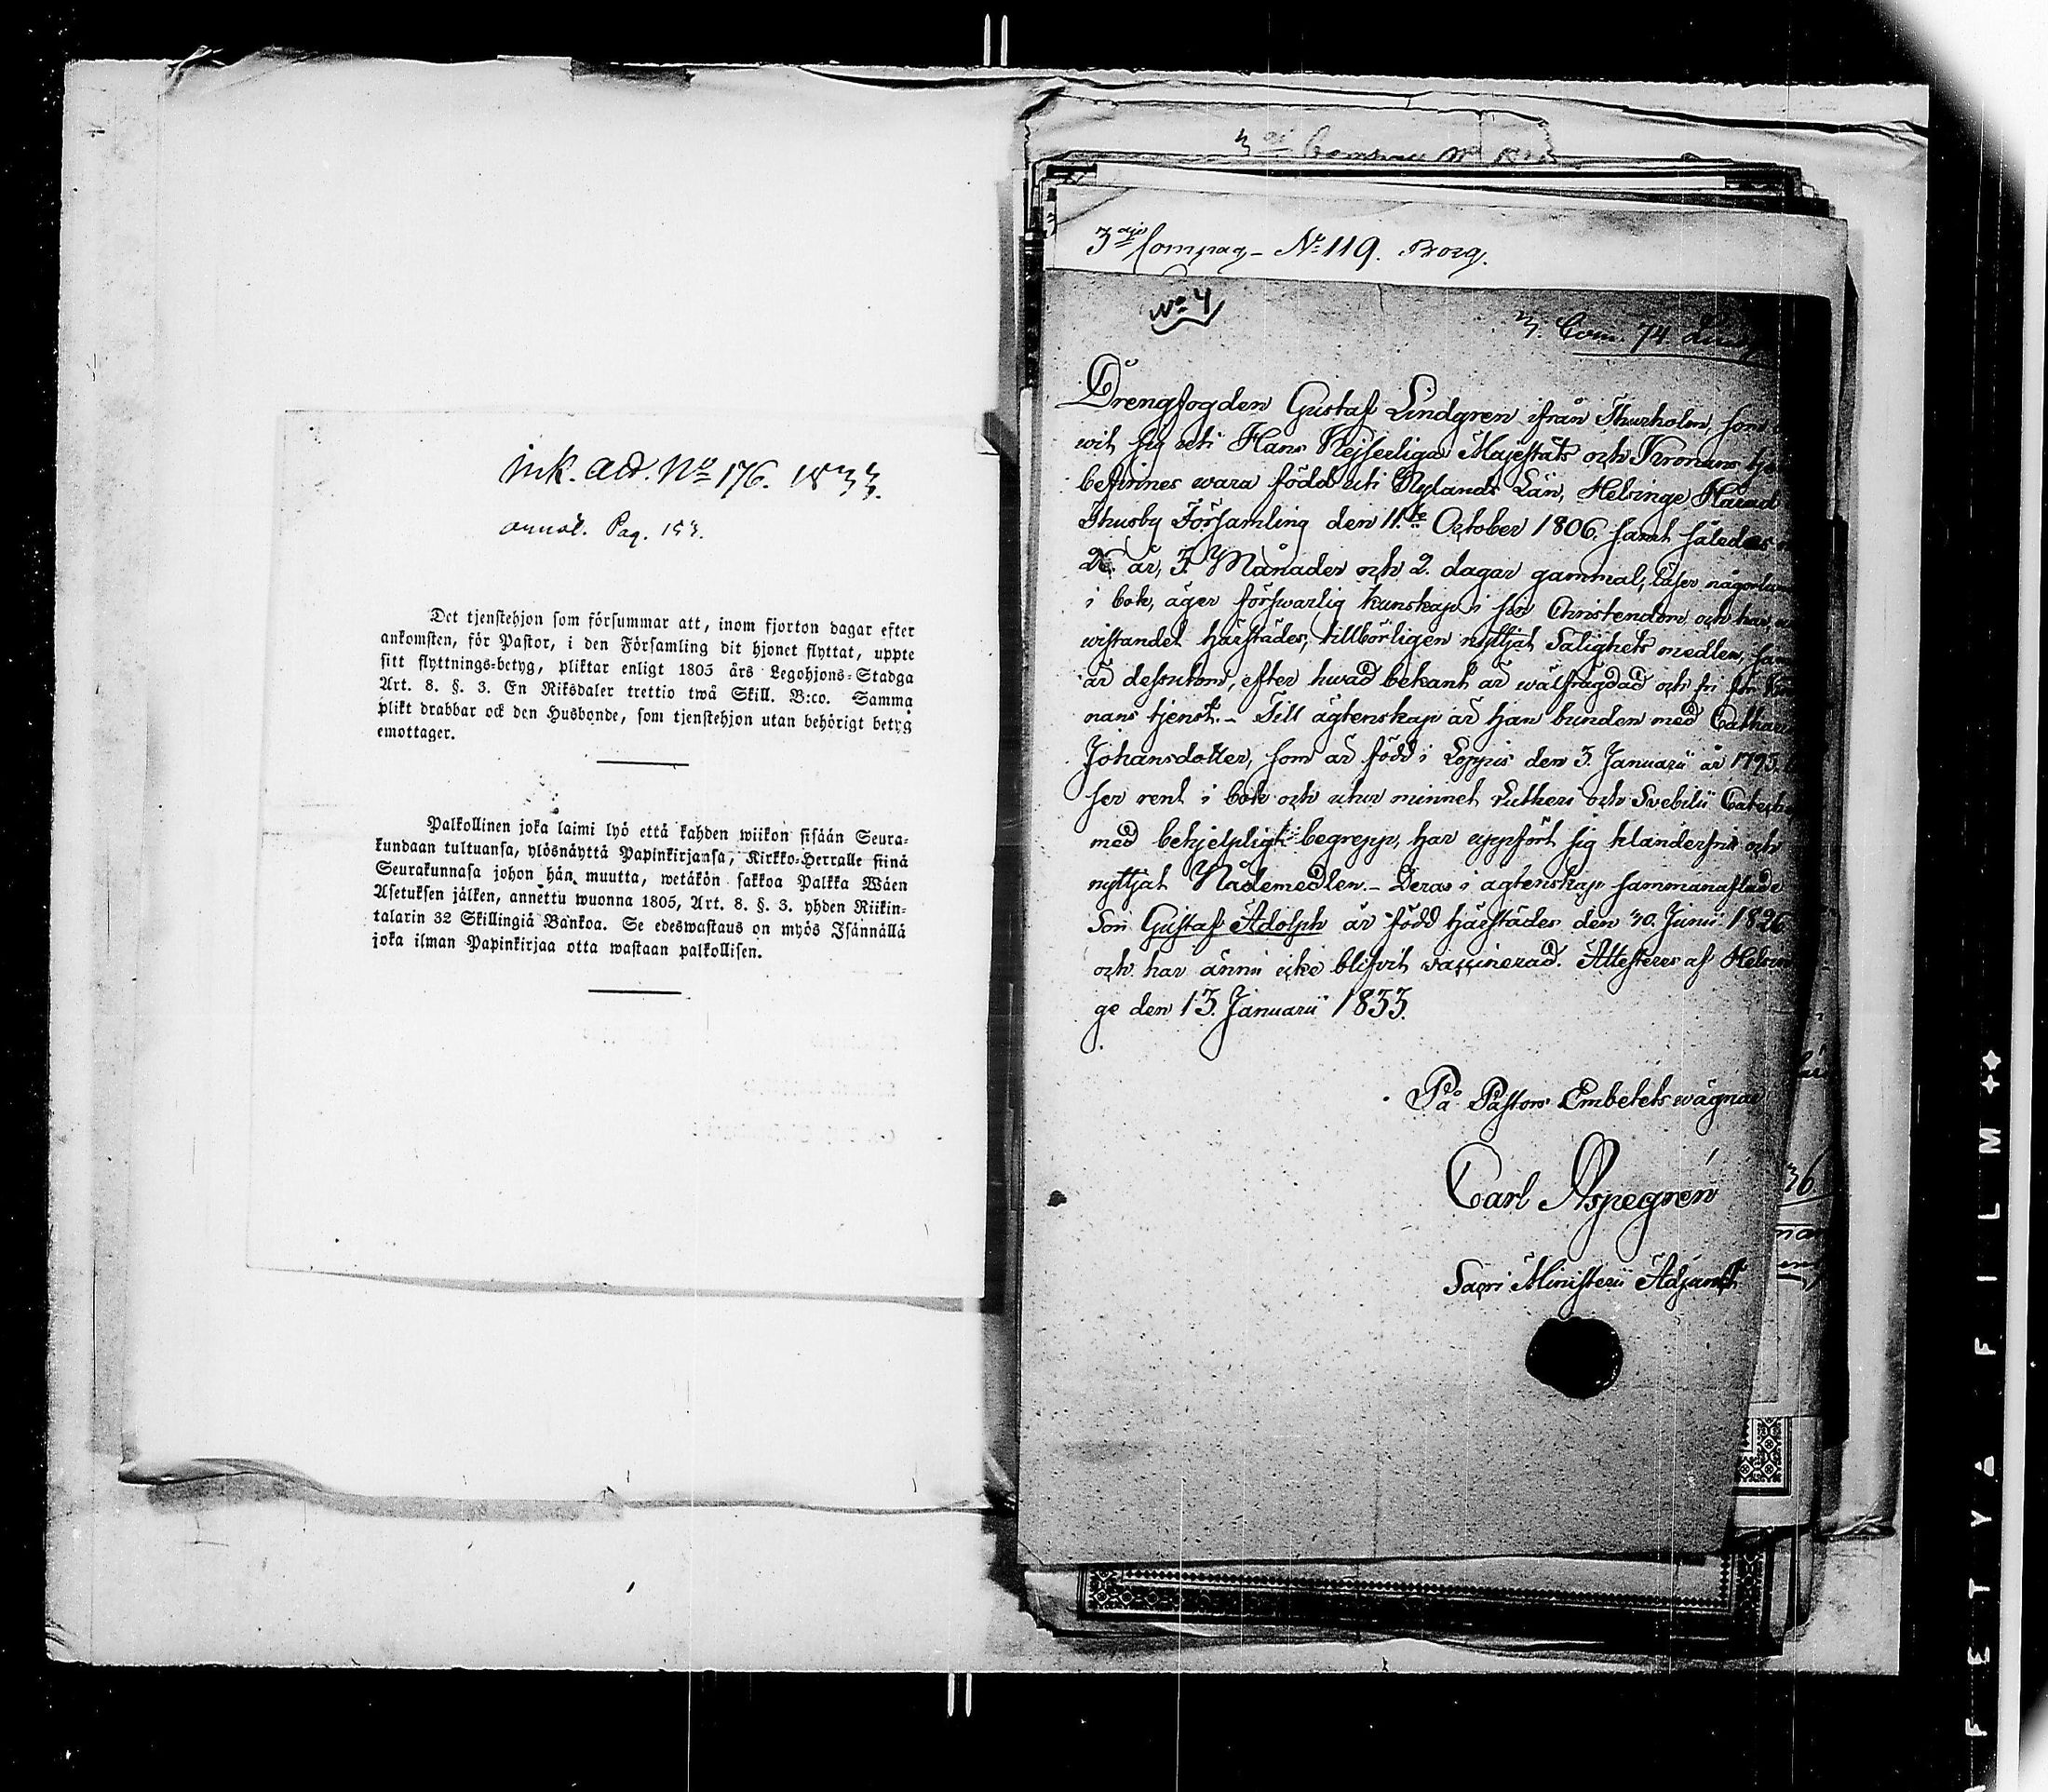 ink. Act. No 176. 1833.
annot. Pag. 153.
Det tjenstehjon som försummar att, inom fjorton dagar efter
ankomsten, för Pastor, i den Församling dit hjonet flyttat, uppte
sitt flyttnings-betyg, pliktar enligt 1805 års Legohjons-Stadga
Art. 8. §. 3. En Riksdaler trettio twå Skill. B:co. Samma
plikt drabbar ock den Husbonde, som tjenstehjon utan behörigt betyg
emottager.
Palkollinen joka laimi lyö että kahden wiikon sisään Seura-
kundaan tultuansa, ylösnäyttä Papinkirjansa, Kirkko-Herralle siinä
Seurakunnasa johon hän muutta, wetäkön sakkoa Palkka Wäen
Asetuksen jälken, annettu wuonna 1805, Art. 8. §. 3. yhden Riikin-
talarin 32 Skillingiä Bankoa. Se edeswastaus on myös Isännällä
joka ilman Papinkirjaa otta wastaan palkollisen.
3dje Compag - No 119. Borg.
No 4
3. Com. 74.
Drengfogden Gustaf Lindgren ifrån Thurholm, som
wit sig uti Hans Kejserliga Majestäts och Kronans
befinnes wara född uti Nylands Län, Helsinge Härad
Thusby Församling den 11te October 1806. samt således
26. år, 3. Månader och 2. dagar gammal; läser någorlun
i bok, äger förswarlig kunskap i sin Christendom och har,
wistandet härstädes, tillbörligen nyttjat Salighets medlen,
är dessutom, efter hwad bekant är wälfrägdad och fri för Kro
nans tjenst. - Till ägtenskap är han bunden med Cathar
Johansdotter, som är född i Loppis den 3. Januarii år 1795.
ser rent i bok och utur minnet Lutheri och Svebilii Catech
med behjelpligt begrepp, har uppfört sig klanderfrit och
nyttjat Nådemedlen. - Deras i ägtenskap sammanaflade
Son Gustaf Adolph är född härstädes den 30. Junii 1826
och har ännu icke blifvit vaccinerad. Attesteres af Helsin
ge den 13. Januarii 1833.
På Pastors Embetets wägnar
Carl Aspegren
Sacri Ministerii Adjunct
36
A F E T Y A F I L M